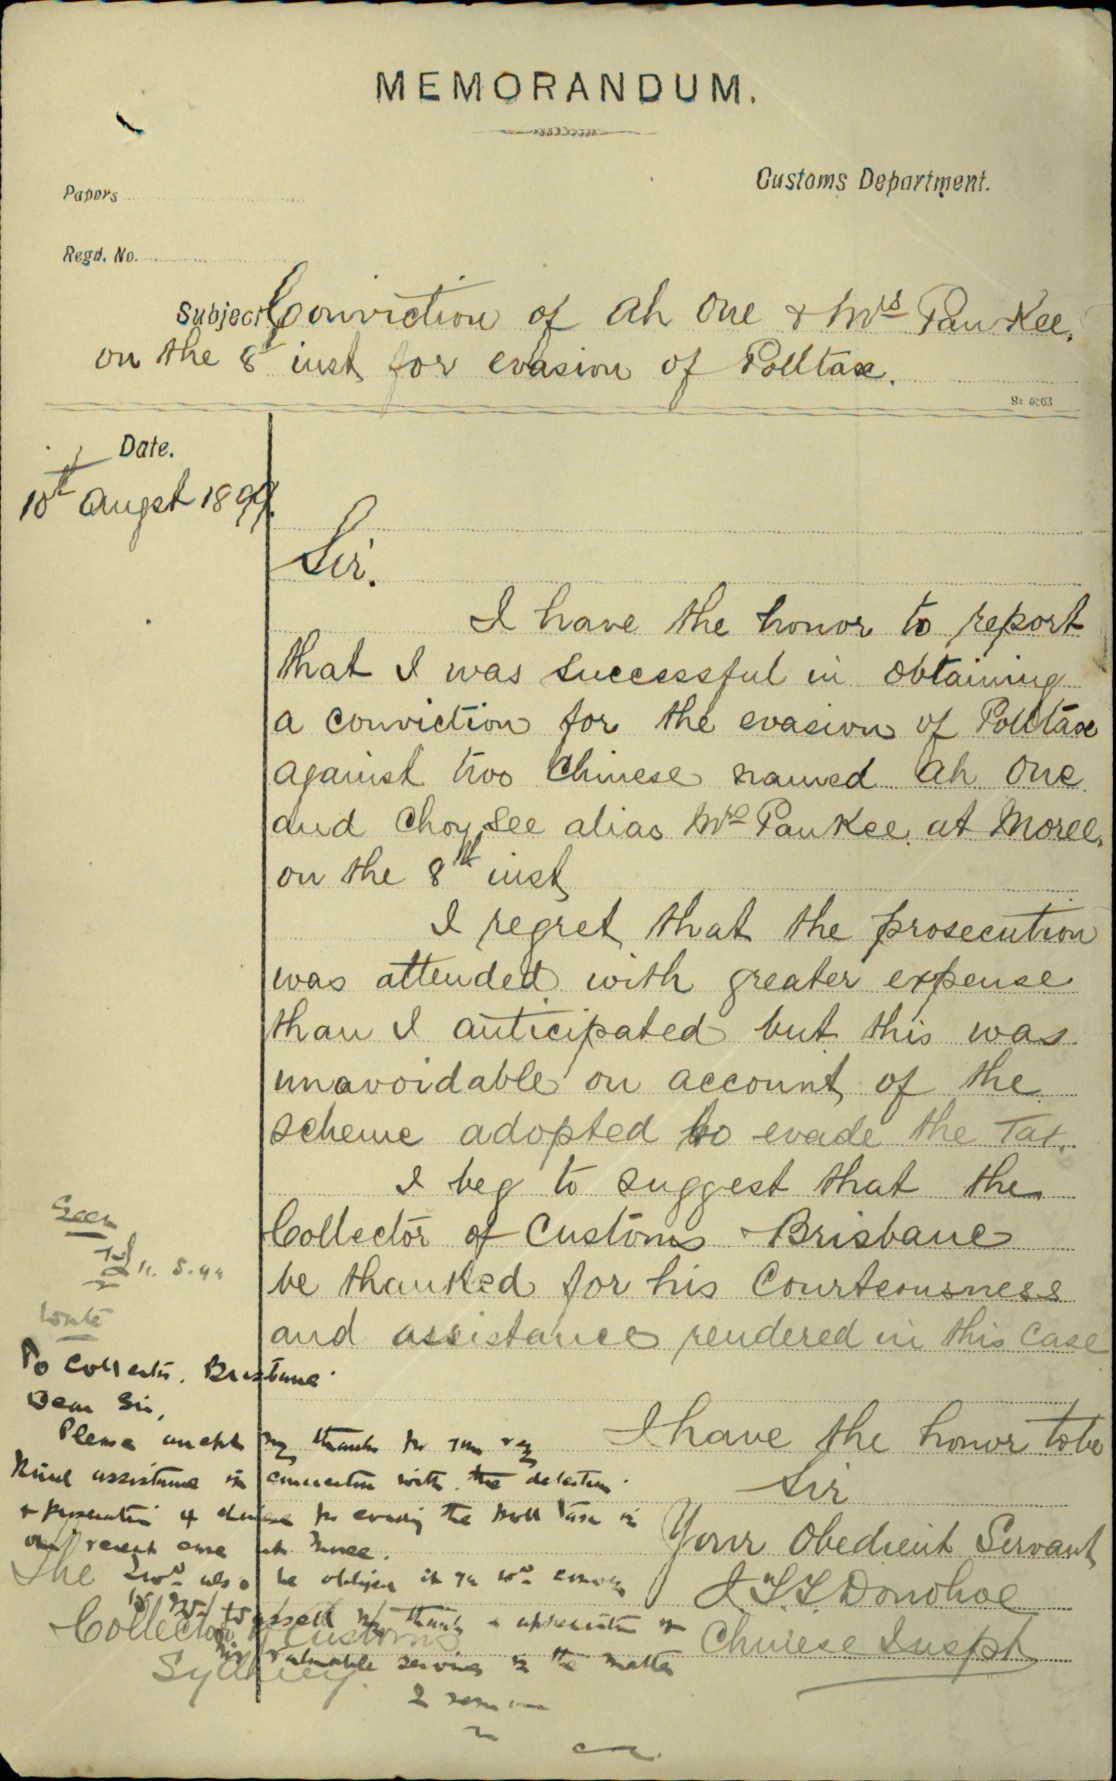 MEMORANDUM.
Customs Department.
Papers
Regd. No.
Subject Conviction of Ah One & Mrs Pan Kee,
on the 8th inst for evasion of Polltax.
Date.
10th Augst 1899.
Sir.
I have the honor to report
that I was successful in obtaining
a conviction for the evasion of Polltax
against two Chinese named Ah One
and Choy See alias Mrs Pan Kee at Moree,
on the 8th inst
I regret that the prosecution
was attended with greater expense
than I anticipated but this was
unavoidable on account of the
scheme adopted to evade the Tax.
I beg to suggest that the
Collector of Customs Brisbane
be thanked for his Courteousness
and assistance rendered in this case
I have the honor to be
Sir
Your Obedient Servant
Donohoe
Chinese Inspt
The
Collector of Customs
Sydney.
Seen
11.8.99
Write
To Collector, Brisbane
Dear Sir,
Please accept my thanks for your very
kind assistance in connection with the detection
& prosecution of Chinese for evading the poll tax in
our recent case at Moree.
I wd also be obliged if you wd convey
thanks & appreciation of
his valuable services in the matter
I remain